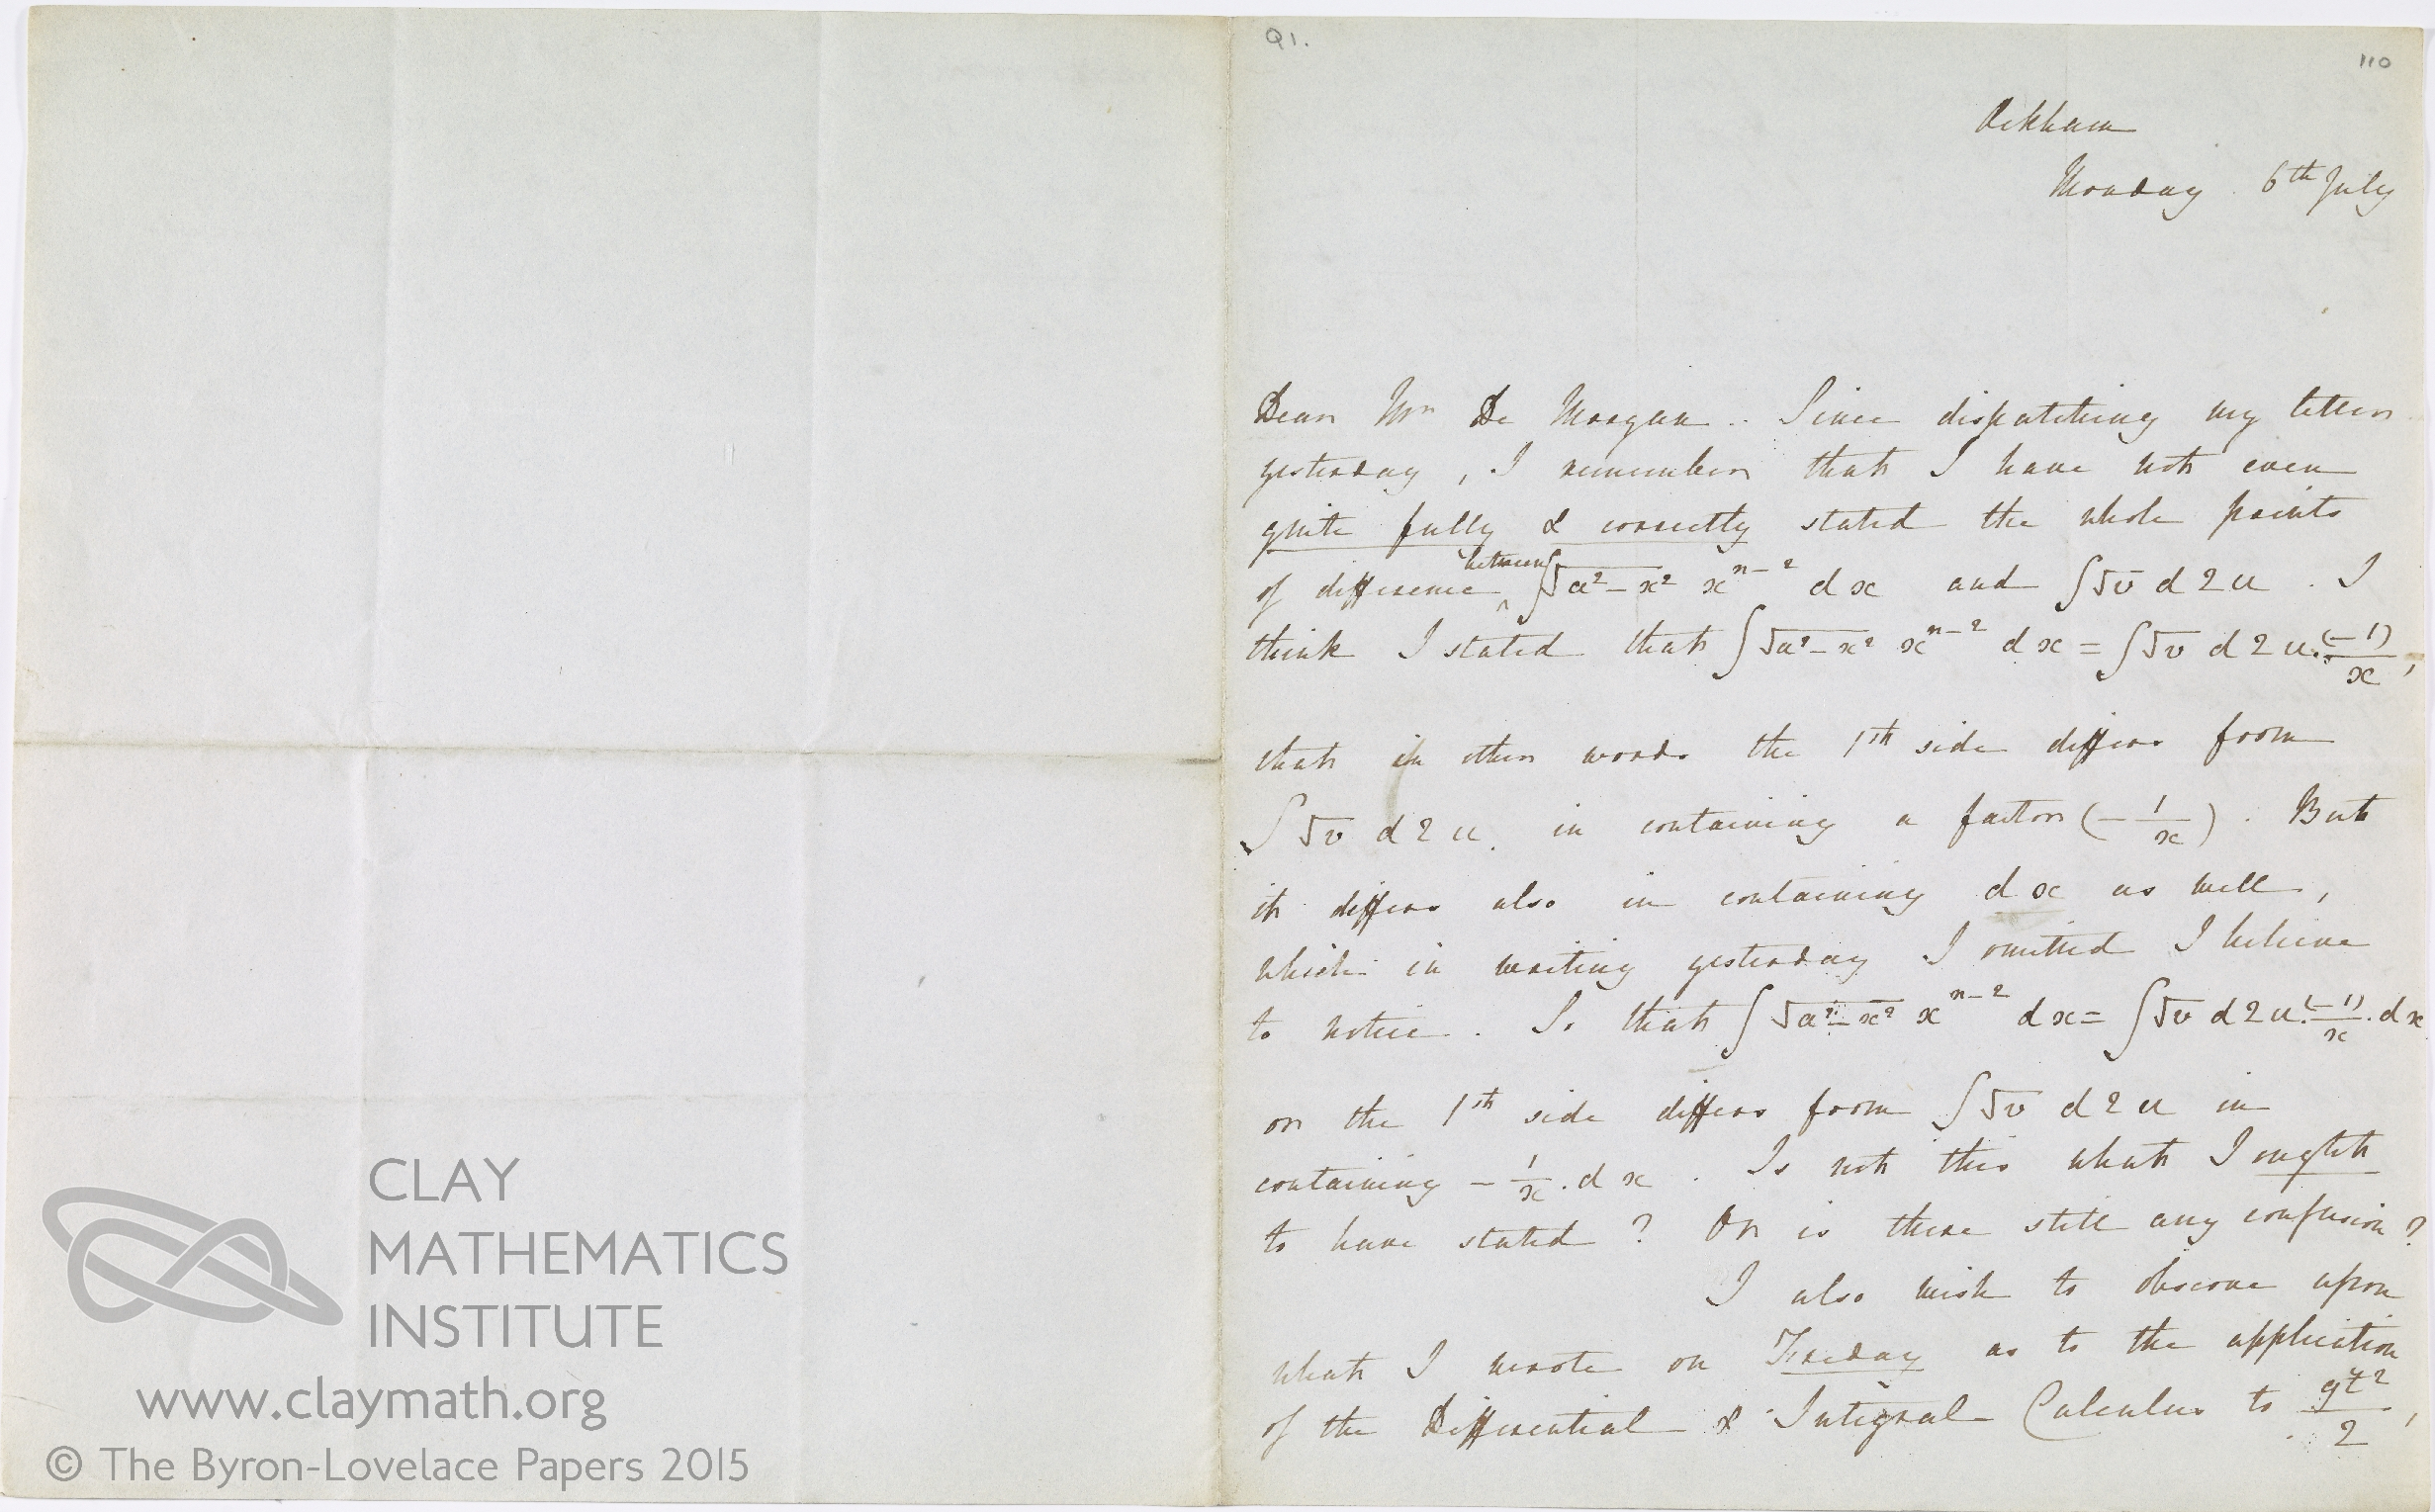 Q1.
110
Ockham
Monday. 6th July
Dear Mr De Morgan.. Since dispatching my letter
yesterday, I remember that I have not even
quite fully & correctly stated the whole points
of difference between ∫√a²-x² xⁿ⁻² dx and ∫√v d2u. I
think I stated that ∫√a²-x² xⁿ⁻² dx = ∫√v d2u.(-1)/x,
that in other words the 1st side differs from
∫√v d2u. in containing a factor (-1/x). But
it differs also in containing dx as well,
which in writing yesterday I omitted I believe
to notice. So that ∫√a²-x² xⁿ⁻² dx = ∫√v d2u.(-1)/x.dx
or the 1st side differs from ∫√v d2u in
containing -1/x.dx. Is not this what I ought
to have stated? Or is there still any confusion?
I also wish to observe upon
what I wrote on Friday as to the application
of the Differential & Integral Calculus to gt²/2,
CLAY
MATHEMATICS
INSTITUTE
www.claymath.org
© The Byron-Lovelace Papers 2015